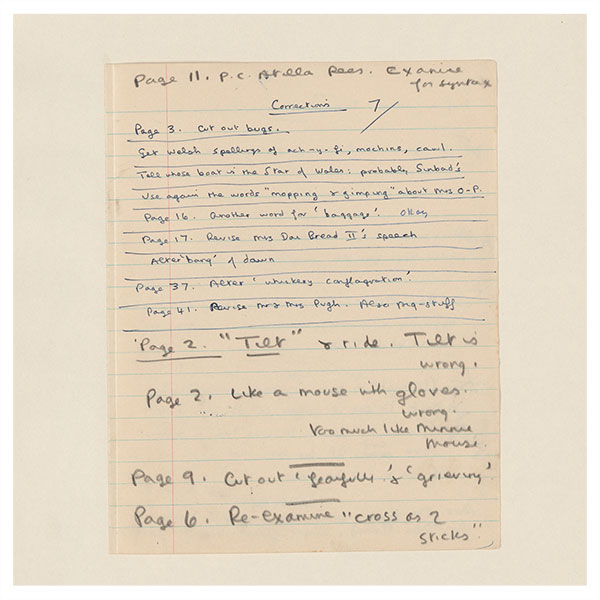 Page 11. P.C. Atilla Rees. Examine
for syntax
Corrections 7
Page 3. Cut out bugs.
Get Welsh spellings of ach-y-fi, mochins, cawl.
Tell whose boat is the Star of Wales: probably Sinbad's
Use again the words "mopping & gimping" about Mrs O-P.
Page 16. Another word for 'baggage'. Okay
Page 17. Revise Mrs Dai Bread II's speech
Alter 'bang' of dawn
Page 37. Alter 'whiskery conflagration'.
Page 41. Revise Mr & Mrs Pugh. Also mg-stuff
Page 2. "Tilt" & ride. Tilt is
wrong.
Page 2. Like a mouse with gloves.
wrong.
Too much like Minnie
Mouse.
Page 9. Cut out 'fearfully' & 'grieving'
Page 6. Re-Examine "cross as 2
sticks".